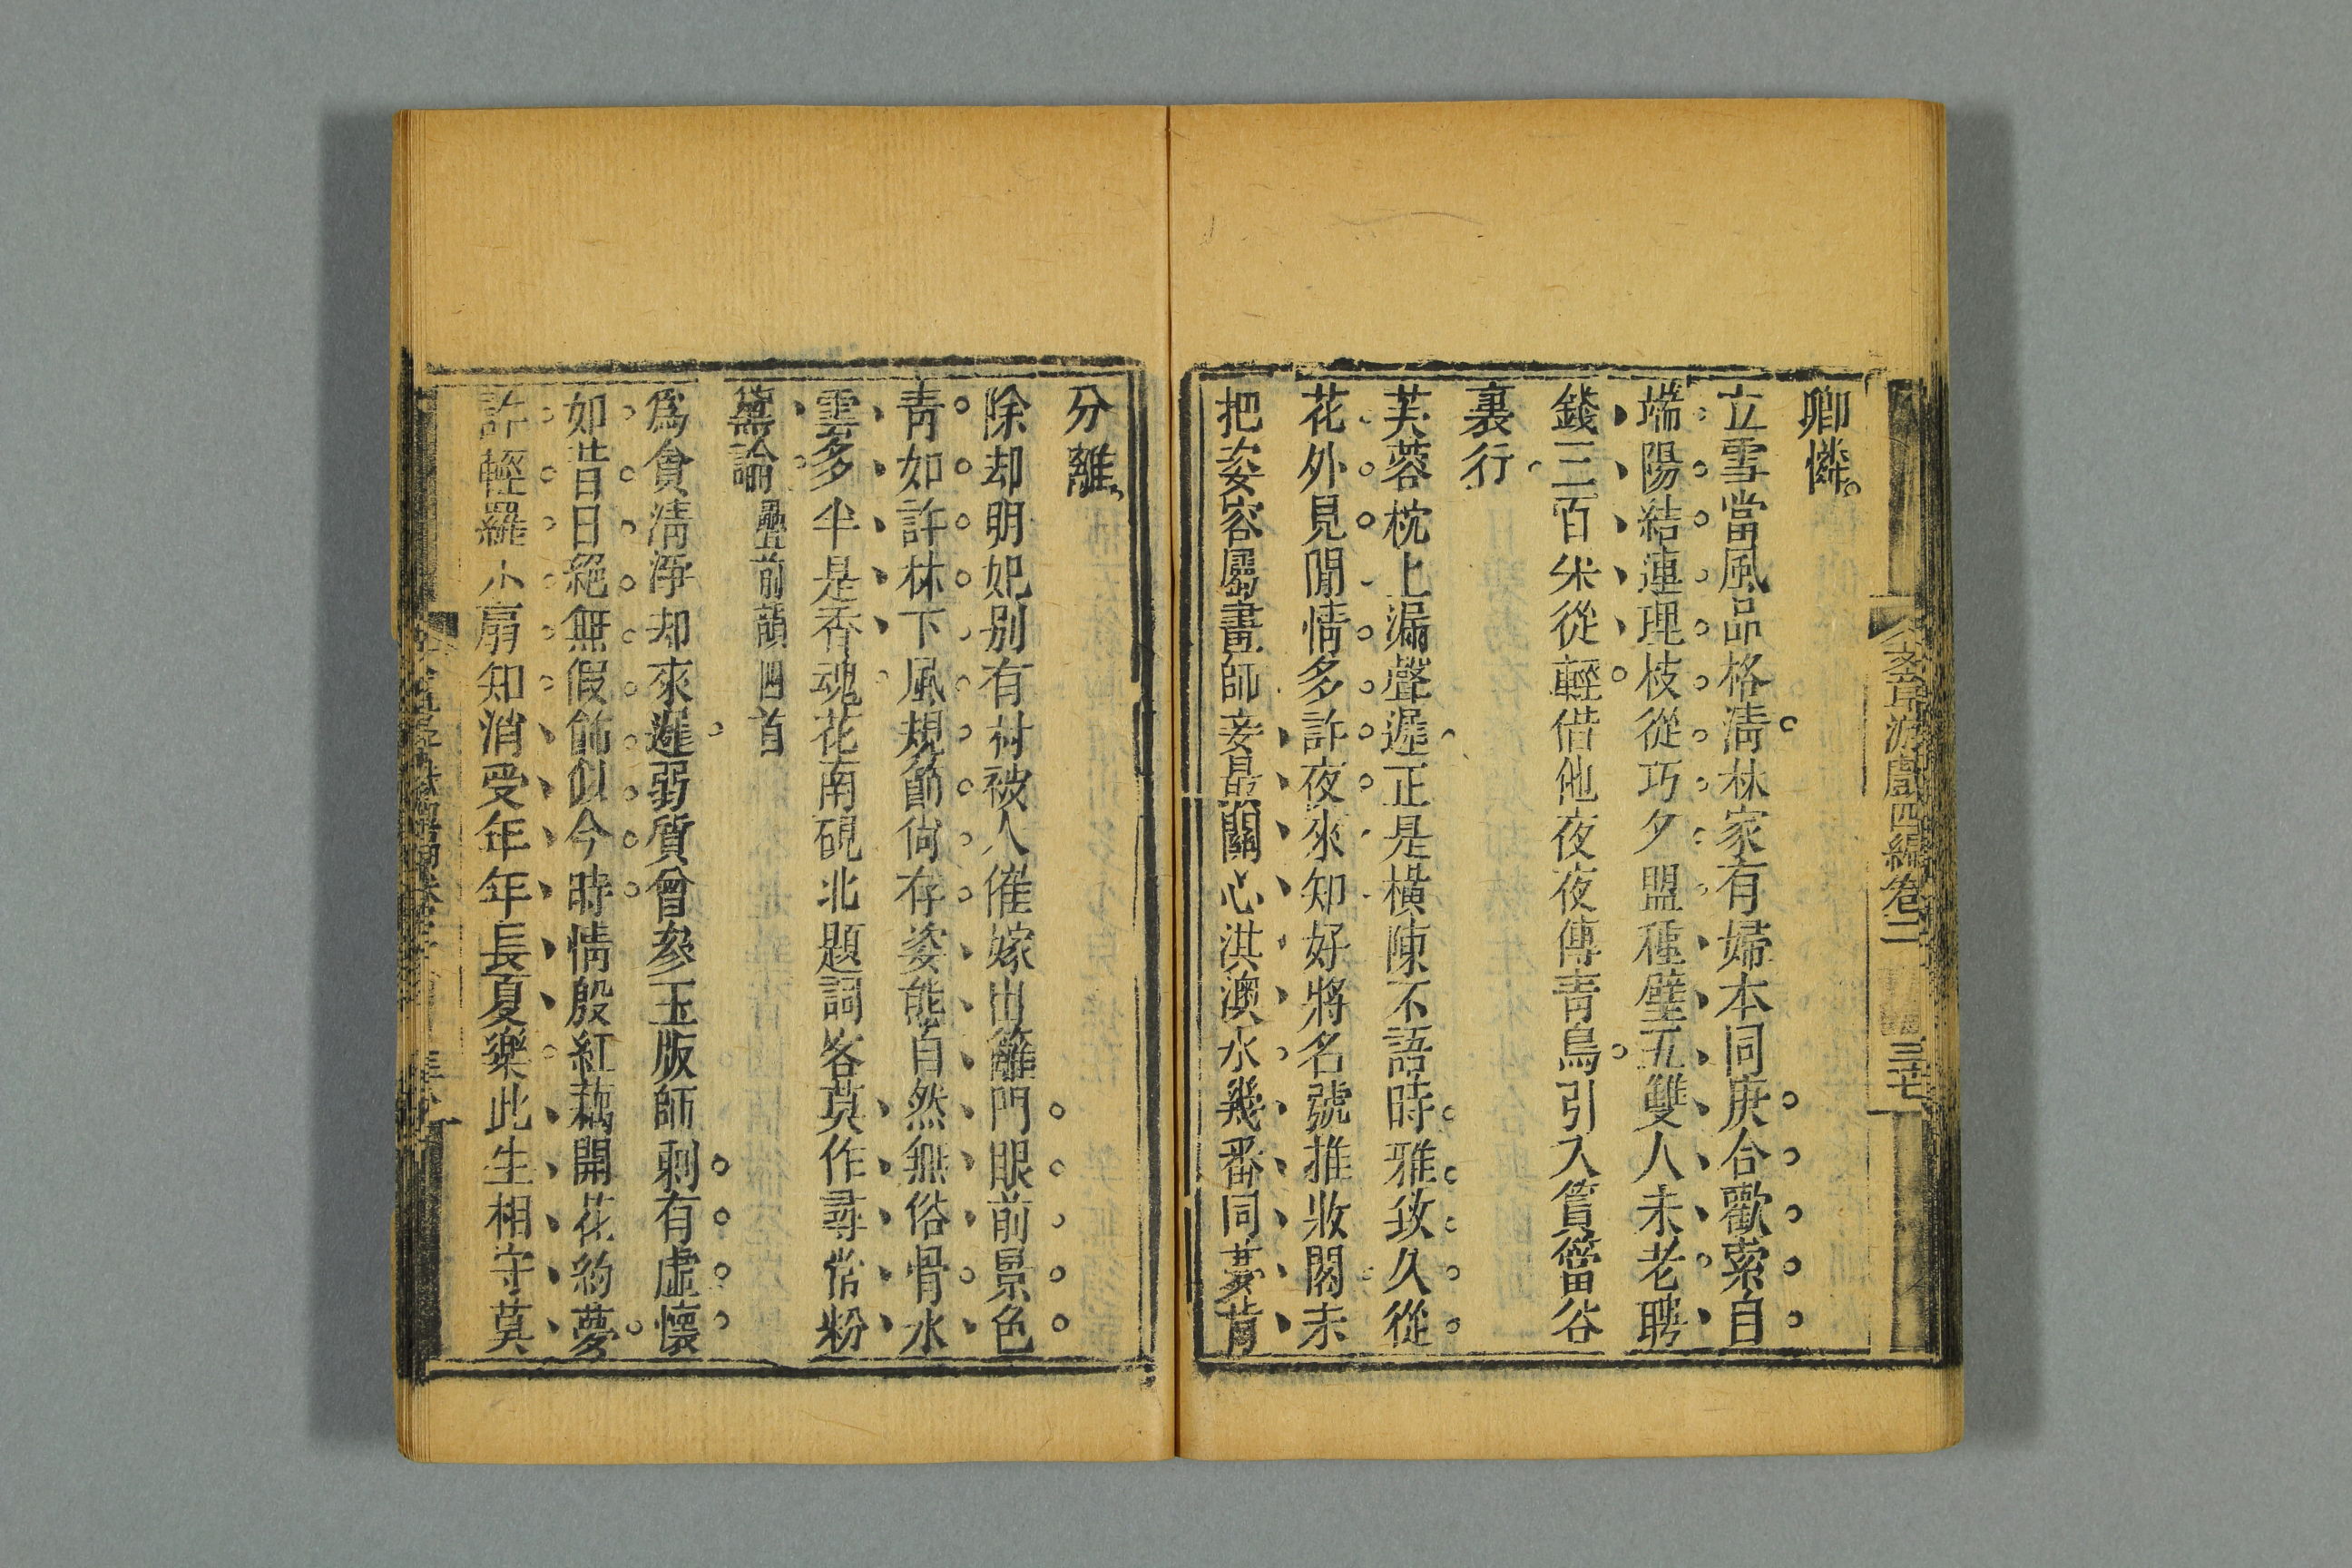 卿憐
立雪當風品格清林家有婦本同庚合歡索自
端陽結連理枝從巧夕盟種璧五雙人未老聘
錢三百米從輕借他夜夜傳青鳥引入篔簹谷
裏行
芙蓉枕上漏聲遲正是橫陳不語時雅致久從
花外見閒情多許夜來知好將名號推妝閣未
把姿容屬畫師妾最關心淇澳水幾番同妾肯
分離
除却明妃別有村被人催嫁出籬門眼前景色
青如許林下風規節尚存姿態自然無俗骨水
雲多半是香魂花南硯北題詞客莫作尋常粉
黛論
疊前韻四首
為貪清淨却來遲弱質曾參玉版師剩有虛懷
如昔日絕無假飾似今時情殷紅藕開花約夢
許輕羅小扇知消受年年長夏樂此生相守莫
游戲四編卷二
三七